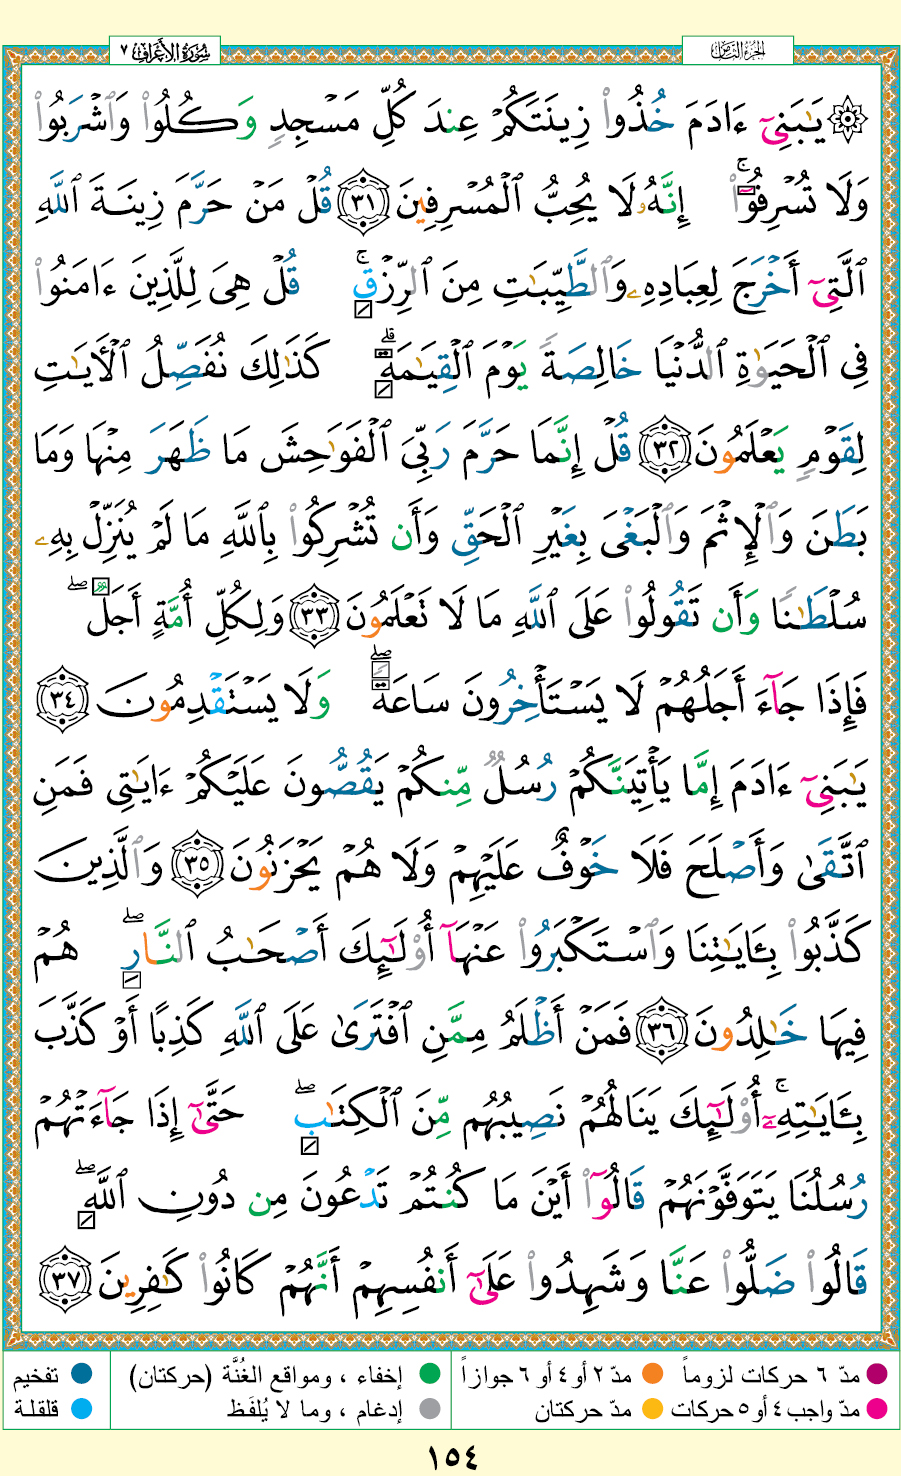 سُورَةُ الأَعْرَافِ ٧
الجُزْءُ الثَّامِنُ
۞ يَـٰبَنِىٓ ءَادَمَ خُذُوا۟ زِينَتَكُمْ عِندَ كُلِّ مَسْجِدٍ وَكُلُوا۟ وَٱشْرَبُوا۟
وَلَا تُسْرِفُوٓا۟ ۚ إِنَّهُۥ لَا يُحِبُّ ٱلْمُسْرِفِينَ ٣١ قُلْ مَنْ حَرَّمَ زِينَةَ ٱللَّهِ
ٱلَّتِىٓ أَخْرَجَ لِعِبَادِهِۦ وَٱلطَّيِّبَـٰتِ مِنَ ٱلرِّزْقِ ۚ قُلْ هِىَ لِلَّذِينَ ءَامَنُوا۟
فِى ٱلْحَيَوٰةِ ٱلدُّنْيَا خَالِصَةً يَوْمَ ٱلْقِيَـٰمَةِ ۗ كَذَٰلِكَ نُفَصِّلُ ٱلْـَٔايَـٰتِ
لِقَوْمٍ يَعْلَمُونَ ٣٢ قُلْ إِنَّمَا حَرَّمَ رَبِّىَ ٱلْفَوَٰحِشَ مَا ظَهَرَ مِنْهَا وَمَا
بَطَنَ وَٱلْإِثْمَ وَٱلْبَغْىَ بِغَيْرِ ٱلْحَقِّ وَأَن تُشْرِكُوا۟ بِٱللَّهِ مَا لَمْ يُنَزِّلْ بِهِۦ
سُلْطَـٰنًا وَأَن تَقُولُوا۟ عَلَى ٱللَّهِ مَا لَا تَعْلَمُونَ ٣٣ وَلِكُلِّ أُمَّةٍ أَجَلٌ ۖ
فَإِذَا جَآءَ أَجَلُهُمْ لَا يَسْتَأْخِرُونَ سَاعَةً ۖ وَلَا يَسْتَقْدِمُونَ ٣٤
يَـٰبَنِىٓ ءَادَمَ إِمَّا يَأْتِيَنَّكُمْ رُسُلٌ مِّنكُمْ يَقُصُّونَ عَلَيْكُمْ ءَايَـٰتِى فَمَنِ
ٱتَّقَىٰ وَأَصْلَحَ فَلَا خَوْفٌ عَلَيْهِمْ وَلَا هُمْ يَحْزَنُونَ ٣٥ وَٱلَّذِينَ
كَذَّبُوا۟ بِـَٔايَـٰتِنَا وَٱسْتَكْبَرُوا۟ عَنْهَآ أُو۟لَـٰٓئِكَ أَصْحَـٰبُ ٱلنَّارِ ۖ هُمْ
فِيهَا خَـٰلِدُونَ ٣٦ فَمَنْ أَظْلَمُ مِمَّنِ ٱفْتَرَىٰ عَلَى ٱللَّهِ كَذِبًا أَوْ كَذَّبَ
بِـَٔايَـٰتِهِۦٓ ۚ أُو۟لَـٰٓئِكَ يَنَالُهُمْ نَصِيبُهُم مِّنَ ٱلْكِتَـٰبِ ۖ حَتَّىٰٓ إِذَا جَآءَتْهُمْ
رُسُلُنَا يَتَوَفَّوْنَهُمْ قَالُوٓا۟ أَيْنَ مَا كُنتُمْ تَدْعُونَ مِن دُونِ ٱللَّهِ ۖ
قَالُوا۟ ضَلُّوا۟ عَنَّا وَشَهِدُوا۟ عَلَىٰٓ أَنفُسِهِمْ أَنَّهُمْ كَانُوا۟ كَـٰفِرِينَ ٣٧
مدّ ٦ حركات لزوماً مدّ ٢ أو ٤ أو ٦ جوازاً إخفاء ، ومواقع الغُنَّة (حركتان) تفخيم
مدّ واجب ٤ أو ٥ حركات مدّ حركتان إدغام ، وما لا يُلفَظ قلقلة
١٥٤